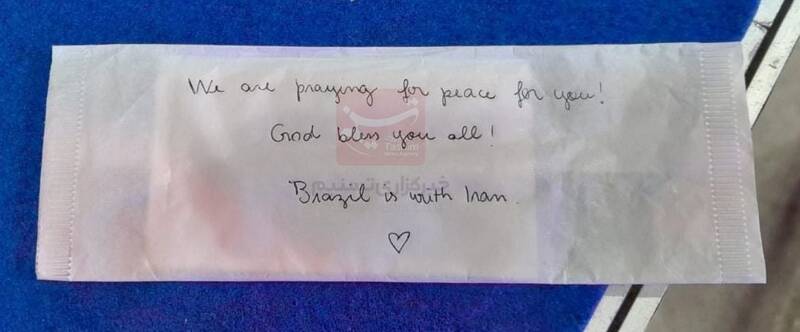 We are praying for peace for you!
God bless you all!
Tasnim
News Agency
خبرگزاری تسنیم
Brazil is with Iran.
♡